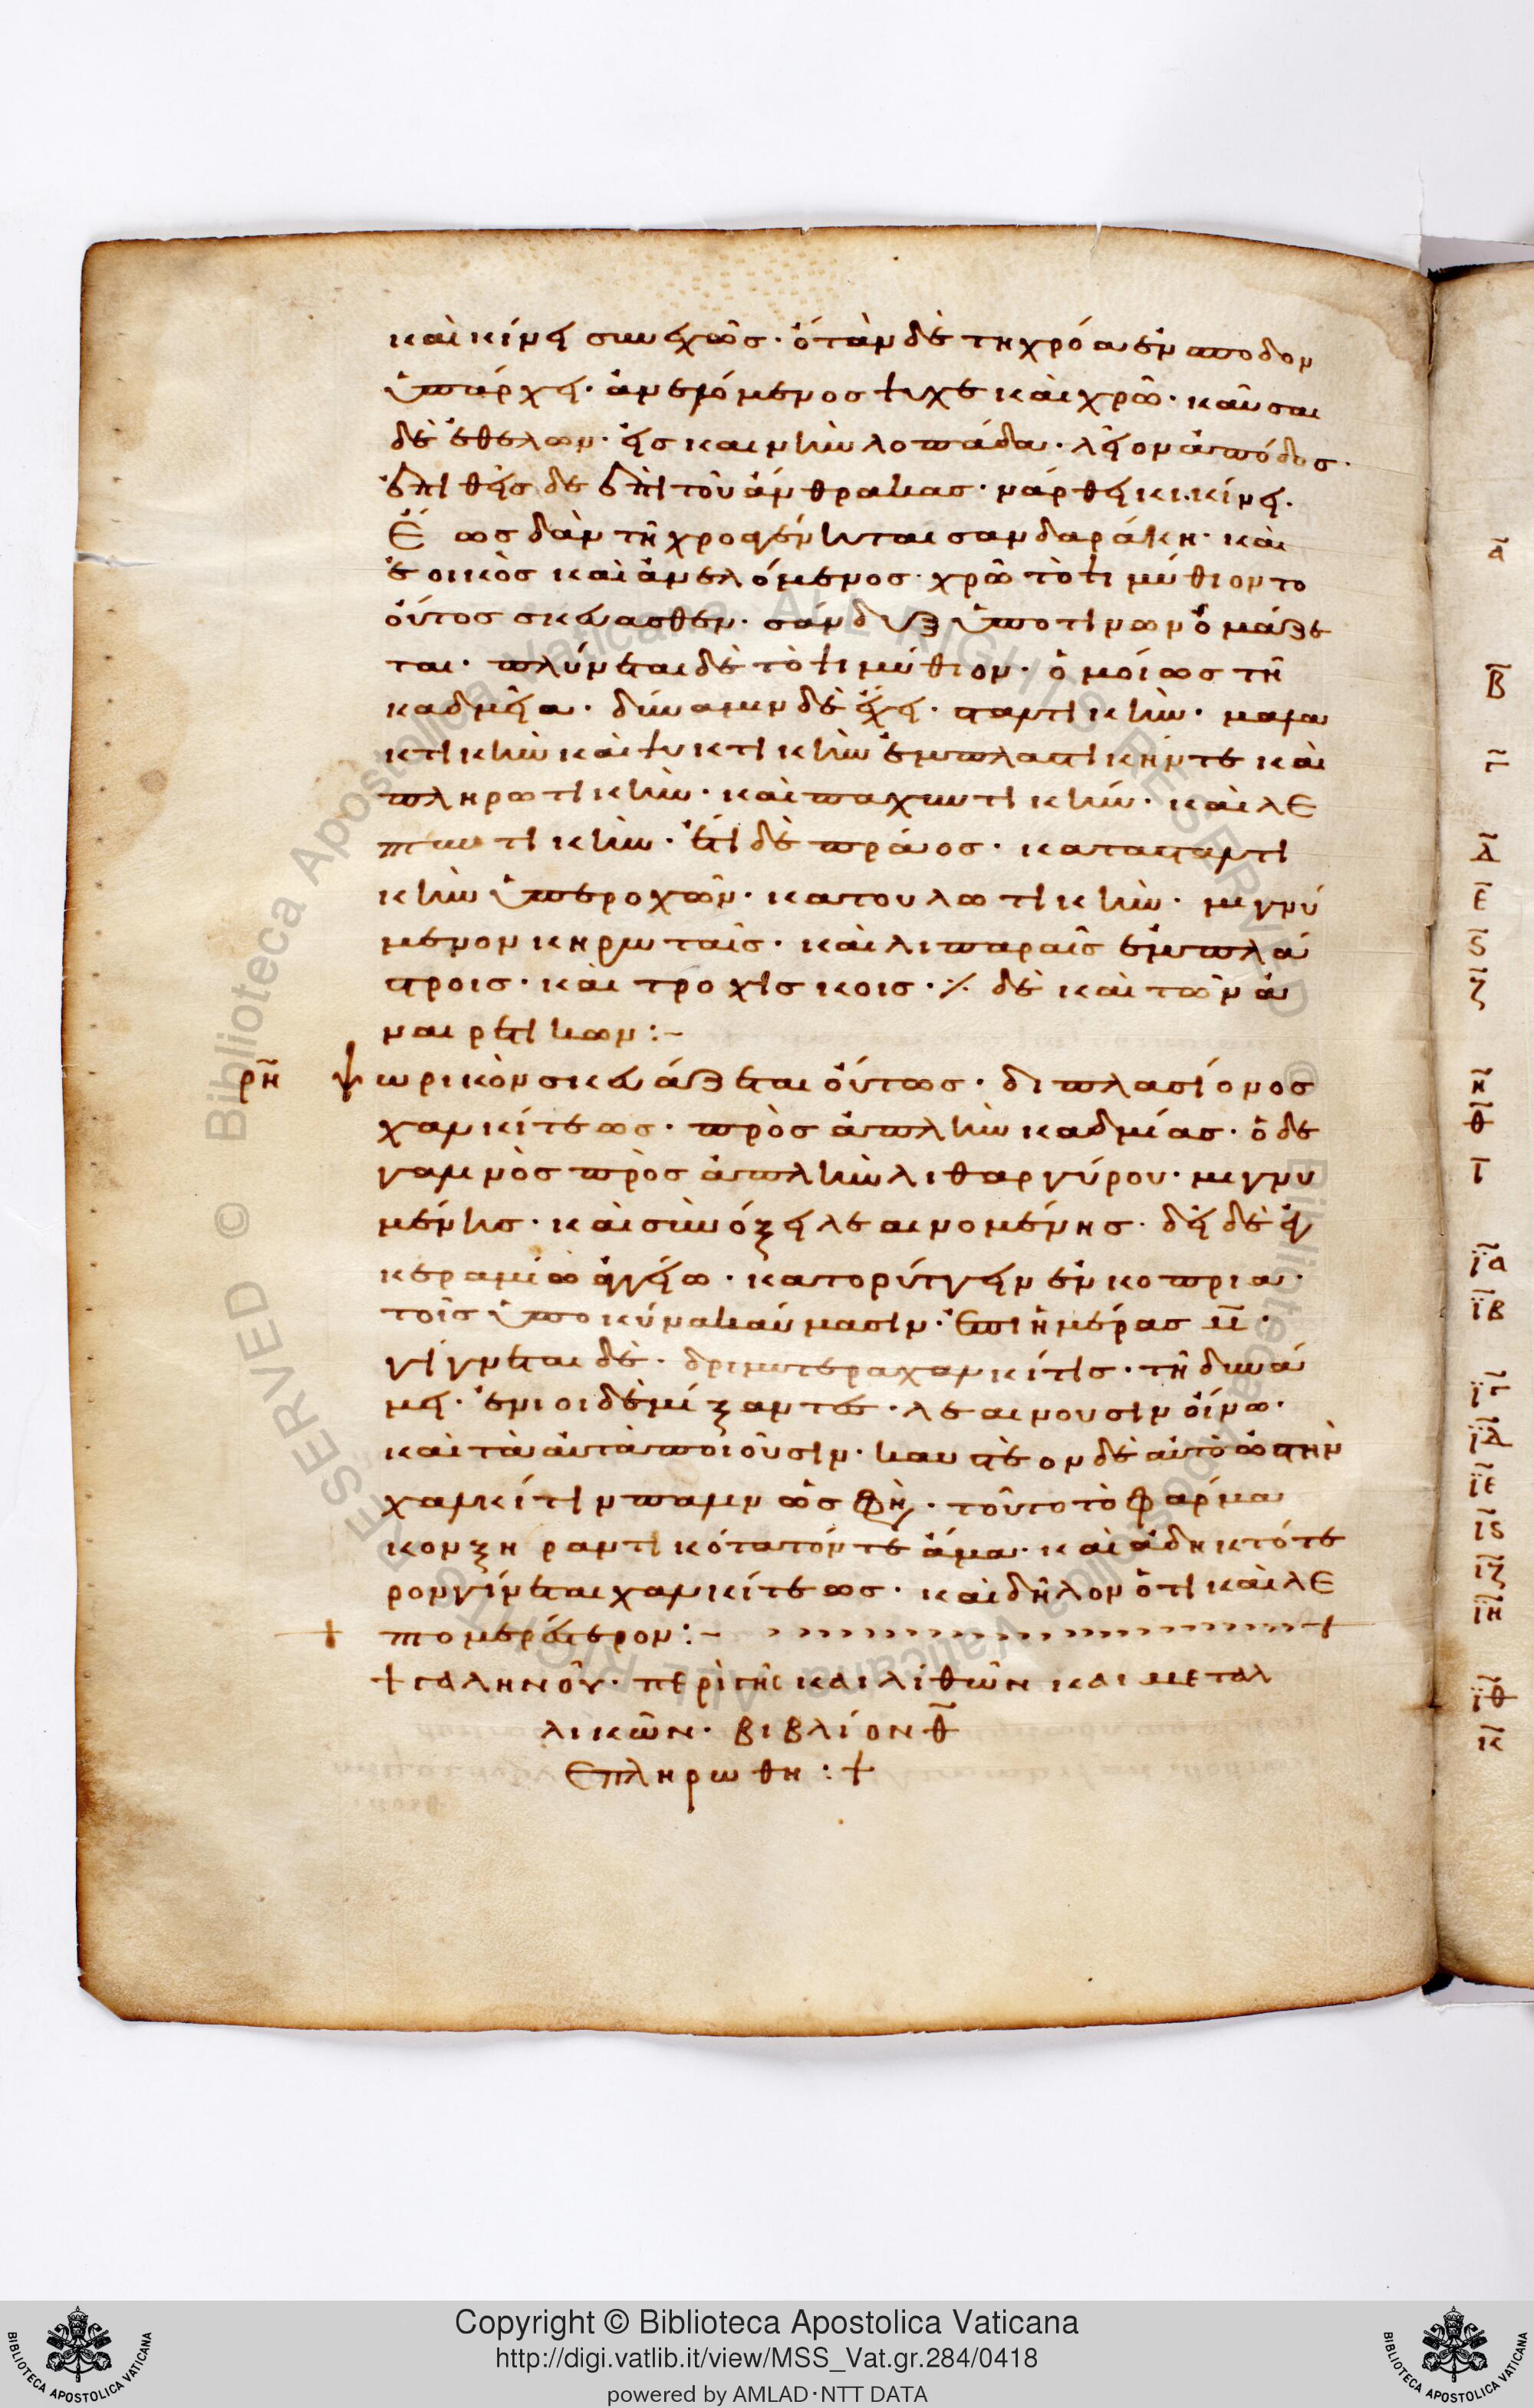 καὶ κίνει συνεχῶς· ὅτὰν δὲ τη χρόα ἐν σποδον
ὑπάρχει· ἀνελόμενος ψυχε καὶ χρῶ· καῦσαι
δὲ ἐθέλων· εἰς καινὴν λοπάδα· λεῖον ἀπόδος·
ἐπιθεὶς δὲ ἐπὶ τοῦ ἄνθρακας· νάρθηκι κίνει·
Ἕως δἂν τῆ χροα γένηται σανδαράκη· καὶ
ἐοικὸς καὶ ἀνελόμενος χρῶ τὸ ψιμύθιον το
οὕτος σκευασθεν· σάνδυξ ὑπο τινων ὀνομάζε
ται· πλύνεται δὲ τὸ ψιμύθιον· ὁμοίως τῆ
καδμεία· δύναμιν δὲ ἔχει· σταλτικὴν· μαλα
κτικὴν καὶ ψυκτικὴν ἐμπλαστικήν τε καὶ
πληρωτικὴν· καὶ παχυντικήν· καὶ λε
πτυντικὴν· ἔτι δὲ πράος· κατασταλτι
κὴν ὑπεροχῶν· κατουλωτικὴν· μιγνύ
μενον κηρωταῖς· καὶ λιπαραῖς ἐμπλά
στροις· καὶ τροχίσκοις ·/. δὲ καὶ τῶν ἀ
ναιρετικων:–
ρη ψωρικὸν σκευάζεται οὕτως· διπλασίονος
χαλκίτεως· πρὸς ἁπλὴν καδμίας· ὁ δε
γαληνὸς πρὸς ἁπλὴν λιθαργύρου· μιγνυ
μένης· καὶ σὺν ὄξει λεαινομένης· δεῖ δὲ ἐν
κεραμίω ἀγείω· κατορύτγειν ἐν κοπρια·
τοῖς ὑπο κύνα καύμασιν· ἐπι ἡμέρας μ·
γίγνεται δὲ· δριμυτερα χαλκίτις· τῆ δυνά
μει· ἔνιοι δὲ μίξαντες· λεαινουσιν οἴνω·
καὶ τὰ ἀυτὰ ποιοῦσιν· καυστεον δὲ αὐτὸ ὡς τὴν
χαλκίτιν πάλιν ὡς φη· τοῦτο τὸ φάρμα
κον ξηραντικότατόν τε ἅμα· καὶ ἀδηκτότε
ρον γίνεται χαλκίτεως· καὶ δῆλον ὅτι καὶ λε
πτομερέστερον:–
+ γαληνοῦ· περὶ γῆς και λίθων και μεταλ
λικῶν· βιβλίον θ
Επληρωθη:+
α
Β
Γ
Δ
Ε
Ϛ
Ζ
Η
Θ
Ι
ΙΑ
ΙΒ
ΙΓ
ΙΔ
ΙΕ
ΙϚ
ΙΖ
ΙΗ
ΙΘ
Κ
Copyright © Biblioteca Apostolica Vaticana
http://digi.vatlib.it/view/MSS_Vat.gr.284/0418
powered by AMLAD·NTT DATA
BIBLIOTECA APOSTOLICA VATICANA
BIBLIOTECA APOSTOLICA VATICANA
© Biblioteca Apostolica Vaticana ALL RIGHTS RESERVED
© Biblioteca Apostolica Vaticana ALL RIGHTS RESERVED